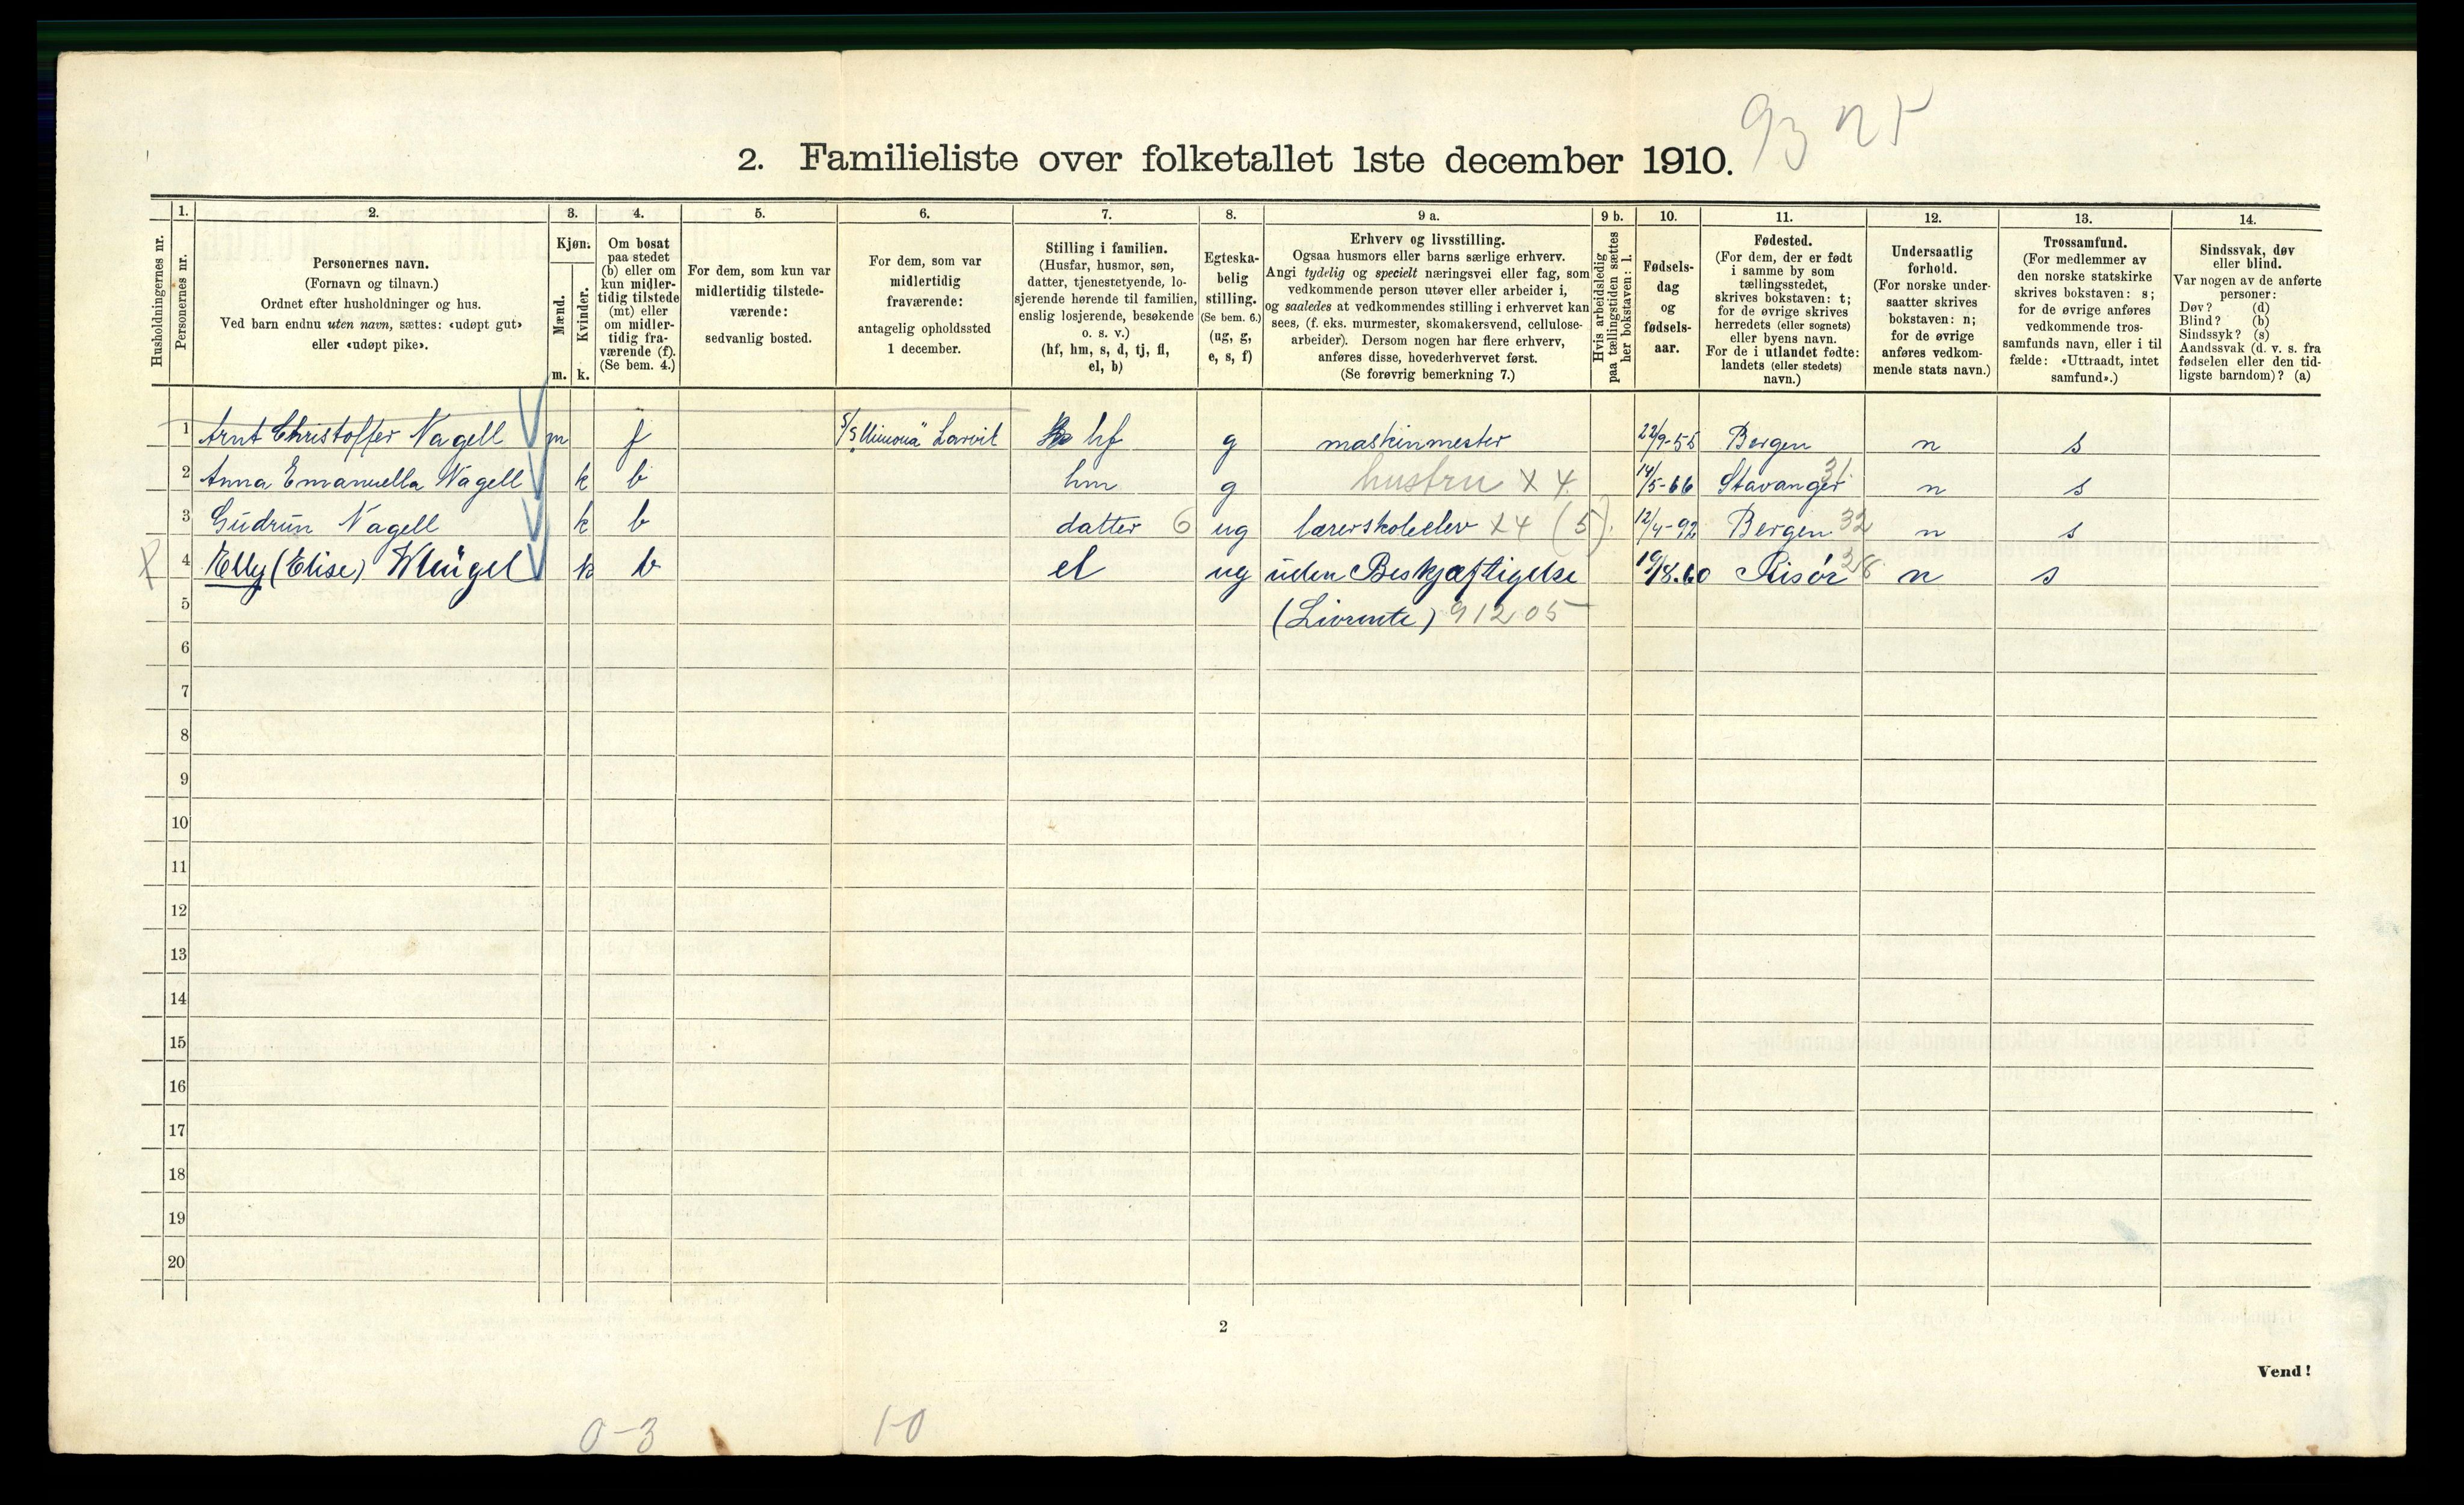 93 n 5
2. Familieliste over folketallet 1ste december 1910.
Husholdningernes nr.
1.
Personernes nr.
2.
Personernes navn.
(Fornavn og tilnavn.)
Ordnet efter husholdninger og hus.
Ved barn endnu uten navn, sættes: «udøpt gut»
eller «udøpt pike».
3.
Kjøn.
Mænd.
Kvinder.
m. k.
4.
Om bosat
paa stedet
(b) eller om
kun midler-
tidig tilstede
(mt) eller
om midler-
tidig fra-
værende (f).
(Se bem. 4.)
5.
For dem, som kun var
midlertidig tilstede-
værende:
sedvanlig bosted.
6.
For dem, som var
midlertidig
fraværende:
antagelig opholdssted
1 december.
7.
Stilling i familien.
(Husfar, husmor, søn,
datter, tjenestetyende, lo-
sjerende hørende til familien,
enslig losjerende, besøkende
o. s. v.)
(hf, hm, s, d, tj, fl,
el, b)
8.
Egteska-
belig
stilling.
(Se bem. 6.)
(ug, g,
e, s, f)
9 a.
Erhverv og livsstilling.
Ogsaa husmors eller barns særlige erhverv.
Angi tydelig og specielt næringsvei eller fag, som
vedkommende person utøver eller arbeider i,
og saaledes at vedkommendes stilling i erhvervet kan
sees, (f. eks. murmester, skomakersvend, cellulose-
arbeider). Dersom nogen har flere erhverv,
anføres disse, hovederhvervet først.
(Se forøvrig bemerkning 7.)
9 b.
Hvis arbeidsledig
paa tællingstiden sættes
her bokstaven: l.
10.
Fødsels-
dag
og
fødsels-
aar.
11.
Fødested.
(For dem, der er født
i samme by som
tællingsstedet,
skrives bokstaven: t;
for de øvrige skrives
herredets (eller sognets)
eller byens navn.
For de i utlandet fødte:
landets (eller stedets)
navn.)
12.
Undersaatlig
forhold.
(For norske under-
saatter skrives
bokstaven: n;
for de øvrige
anføres vedkom-
mende stats navn.)
13.
Trossamfund.
(For medlemmer av
den norske statskirke
skrives bokstaven: s;
for de øvrige anføres
vedkommende tros-
samfunds navn, eller i til
fælde: «Uttraadt, intet
samfund».)
14.
Sindssvak, døv
eller blind.
Var nogen av de anførte
personer:
Døv? (d)
Blind? (b)
Sindssyk? (s)
Aandssvak (d. v. s. fra
fødselen eller den tid-
ligste barndom)? (a)
1 Arnt Christoffer Nagell m f S/S "Minona" Larvik hf g maskinmester 22/9-55 Bergen n s
2 Anna Emanuella Nagell k b hm g hustru X 4. 14/5-66 Stavanger 31 n s
3 Gudrun Nagell k b datter 6 ug lærerskoleelev X4 (5). 12/4-92 Bergen 32 n s
X 4 Elly (Elise) k b el ug uden Beskjæftigelse 19/8.60 Risör 28 n s
5 (Livrente) 91205
6
7
8
9
10
11
12
13
14
15
16
17
18
19
20
2
Vend!
0-3 1-0